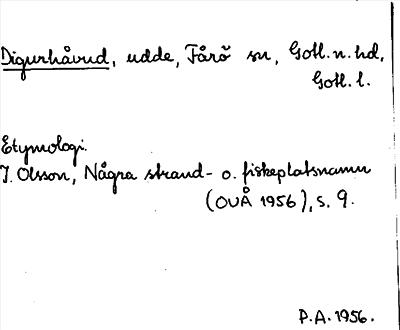 Digurhåvud, udde, Fårö sn, Gotl. n. hd,
Gotl. l.
Etymologi.
I. Olsson, Några strand- o. fiskeplatsnamn
(OUÅ 1956), s. 9.
P.A. 1956.